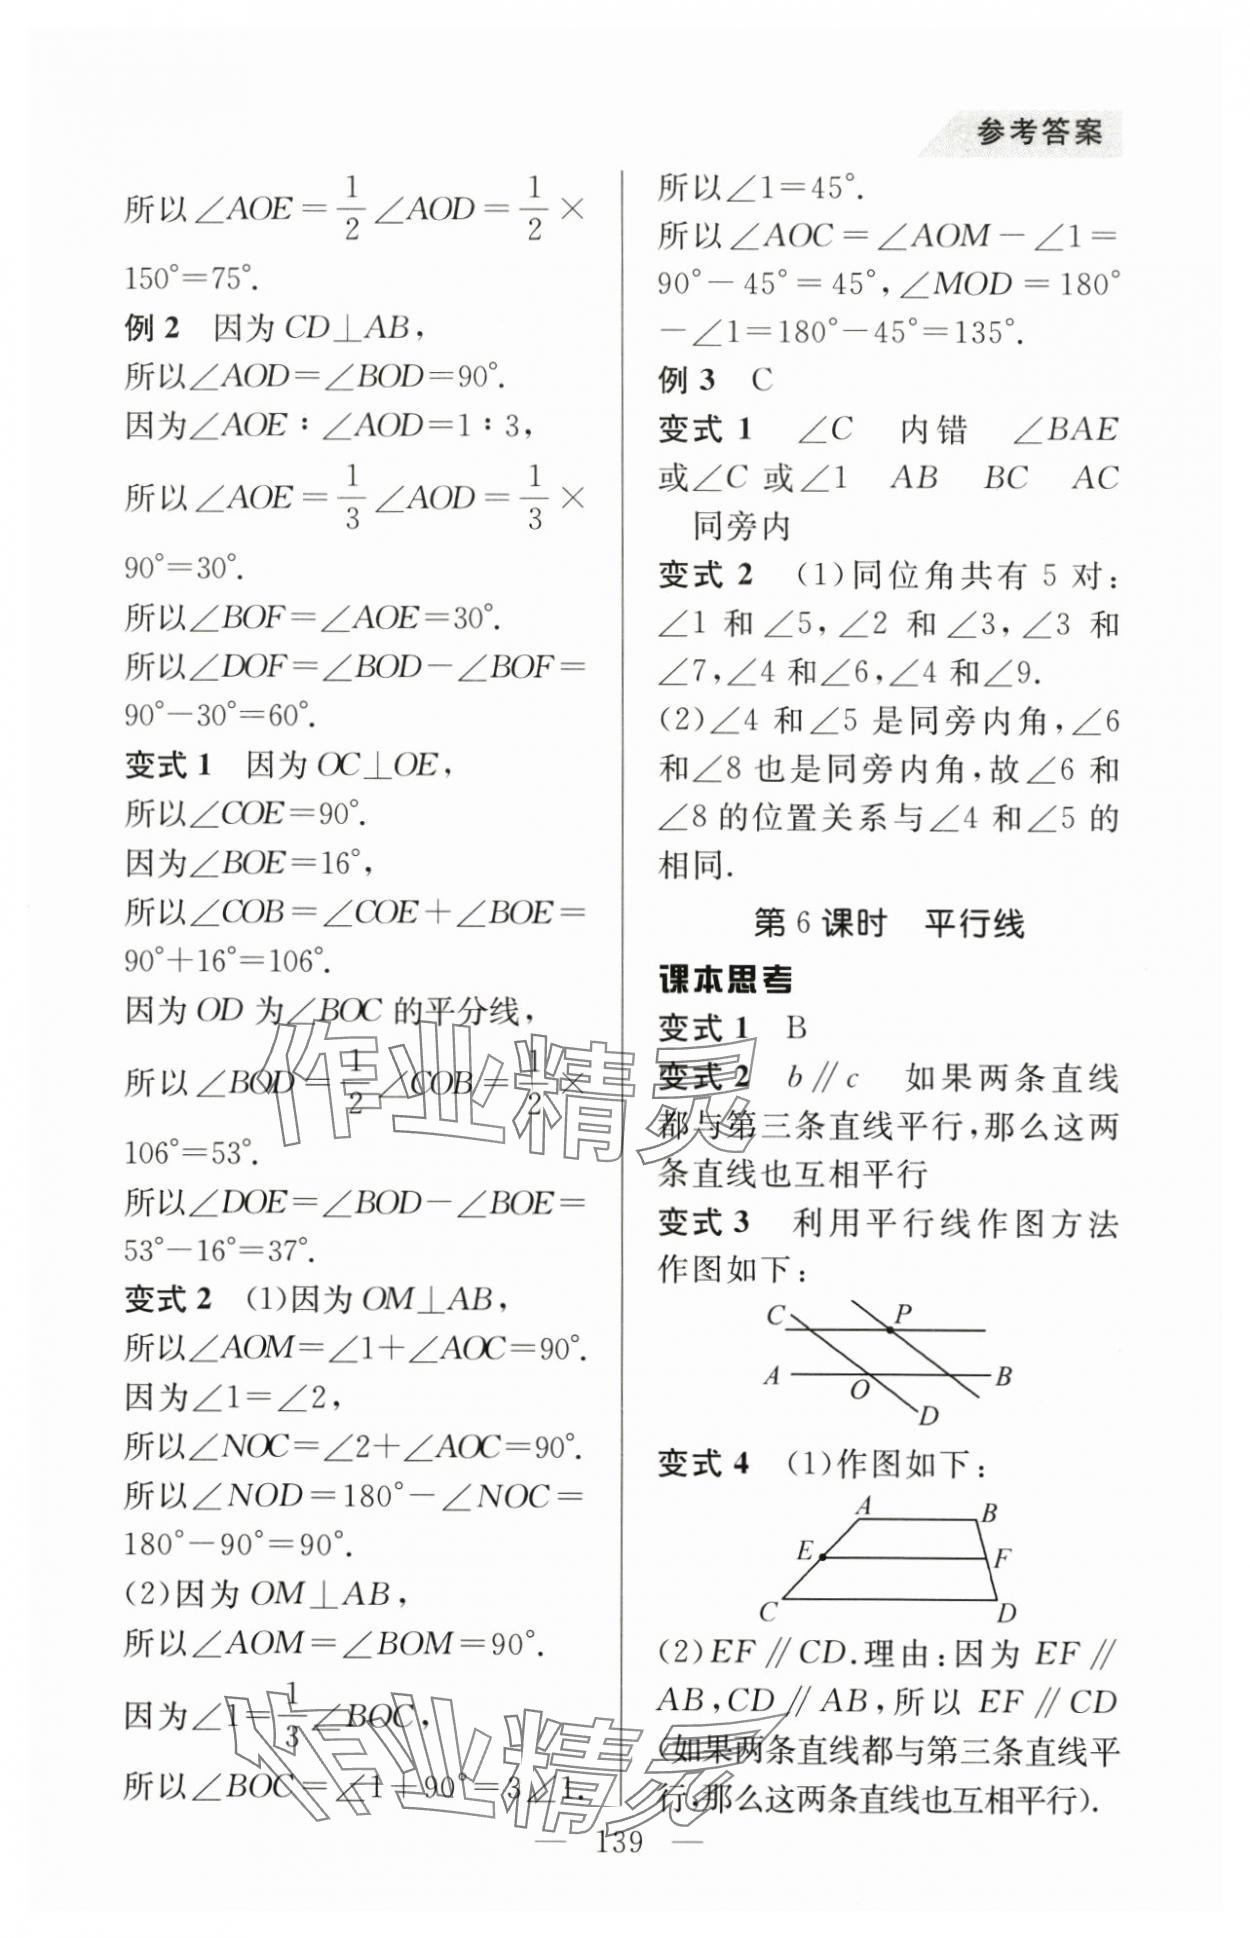 参考答案
所以∠AOE=1/2∠AOD=1/2×
150°=75°.
例2 因为CD⊥AB,
所以∠AOD=∠BOD=90°.
因为∠AOE∶∠AOD=1∶3,
所以∠AOE=1/3∠AOD=1/3×
90°=30°.
所以∠BOF=∠AOE=30°.
所以∠DOF=∠BOD-∠BOF=
90°-30°=60°.
变式1 因为OC⊥OE,
所以∠COE=90°.
因为∠BOE=16°,
所以∠COB=∠COE+∠BOE=
90°+16°=106°.
因为OD为∠BOC的平分线,
所以∠BOD=1/2∠COB=1/2×
106°=53°.
所以∠DOE=∠BOD-∠BOE=
53°-16°=37°.
变式2 (1)因为OM⊥AB,
所以∠AOM=∠1+∠AOC=90°.
因为∠1=∠2,
所以∠NOC=∠2+∠AOC=90°.
所以∠NOD=180°-∠NOC=
180°-90°=90°.
(2)因为OM⊥AB,
所以∠AOM=∠BOM=90°.
因为∠1=1/3∠BOC,
所以∠BOC=∠1+90°=3∠1.
所以∠1=45°.
所以∠AOC=∠AOM-∠1=
90°-45°=45°,∠MOD=180°
-∠1=180°-45°=135°.
例3 C
变式1 ∠C 内错 ∠BAE
或∠C或∠1 AB BC AC
同旁内
变式2 (1)同位角共有5对:
∠1和∠5,∠2和∠3,∠3和
∠7,∠4和∠6,∠4和∠9.
(2)∠4和∠5是同旁内角,∠6
和∠8也是同旁内角,故∠6和
∠8的位置关系与∠4和∠5的
相同.
第6课时 平行线
课本思考
变式1 B
变式2 b∥c 如果两条直线
都与第三条直线平行,那么这两
条直线也互相平行
变式3 利用平行线作图方法
作图如下:
C P
A O B
D
变式4 (1)作图如下:
A B
E F
C D
(2)EF∥CD.理由:因为EF∥
AB,CD∥AB,所以EF∥CD
(如果两条直线都与第三条直线平
行,那么这两条直线也互相平行).
— 139 —
作业精灵
作业精灵